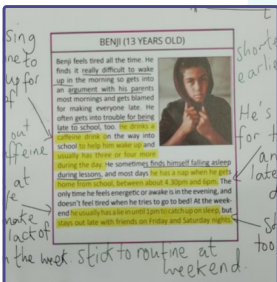 BENJI (13 YEARS OLD)
Benji feels tired all the time. He
finds it really difficult to wake
up in the morning so gets into
an argument with his parents
most mornings and gets blamed
for making everyone late. He
often gets into trouble for being
late to school, too. He drinks a
caffeine drink on the way into
school to help him wake up and
usually has three or four more
during the day. He sometimes finds himself falling asleep
during lessons, and most days he has a nap when he gets
home from school, between about 4.30pm and 6pm. The
only time he feels energetic or awake is in the evening, and
doesn't feel tired when he tries to go to bed! At the week-
end he usually has a lie in until 1pm to catch up on sleep, but
stays out late with friends on Friday and Saturday nights.
sing
ne to
up for
out
ffeine
at
lack of
the week.
stick to routine at
weekend.
short
earlie
He's
for
an
late
d
So
too